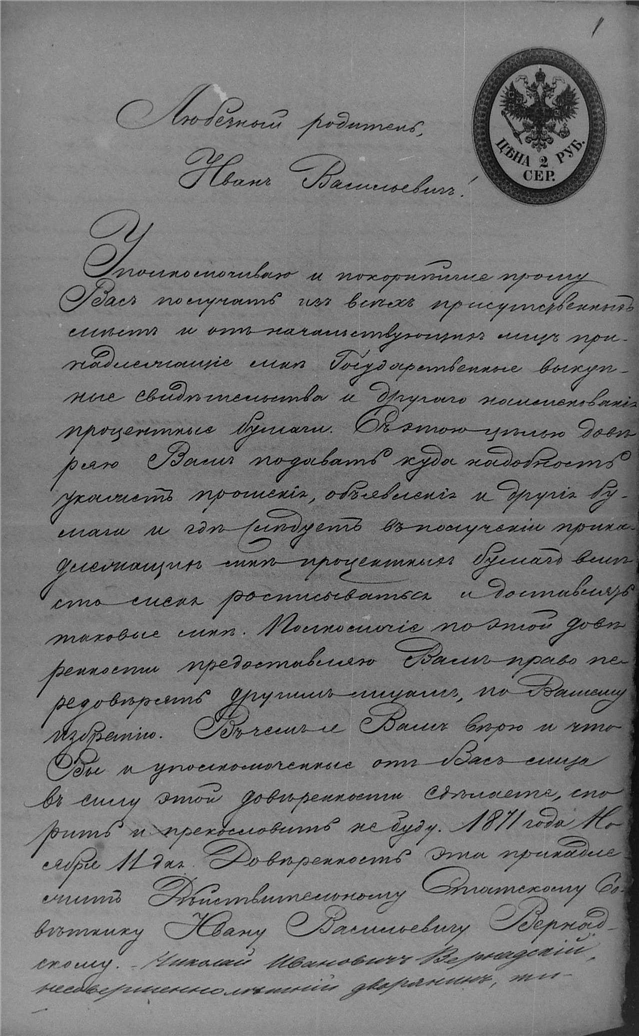 1
ЦѢНА 2 РУБ.
СЕР.
Любезный родитель,
Иванъ Васильевичъ!
Уполномочиваю и покорнѣйше прошу
Васъ получать изъ всѣхъ присутственныхъ
мѣстъ и отъ начальствующихъ лицъ при-
надлежащіе мнѣ Государственные выкуп-
ные свидѣтельства и другаго наименованія
процентные бумаги. Съ этою цѣлью довѣ
ряю Вамъ подавать куда надобность
укажетъ прошенія, объявленія и другія бу-
маги и гдѣ слѣдуетъ въ полученіи прина
длежащихъ мнѣ процентныхъ бумагъ вмѣ
сто меня росписываться и доставлять
таковые мнѣ. Полномочіе по этой довѣ
ренности предоставляю Вамъ право пе
редовѣрять другимъ лицамъ, по Вашему
избранію. Въ чемъ я Вамъ вѣрю и что
Вы и уполномоченные отъ Васъ лица
въ силу этой довѣренности сдѣлаете, спо
рить и прекословить не буду. 1871 года Но
ября 11 дня. Довѣренность эта принадле
житъ Дѣйствительному Статскому Со-
вѣтнику Ивану Васильевичу Вернад-
скому. Николай Ивановичъ Вернадскій,
несовершеннолѣтній дворянинъ, ти-